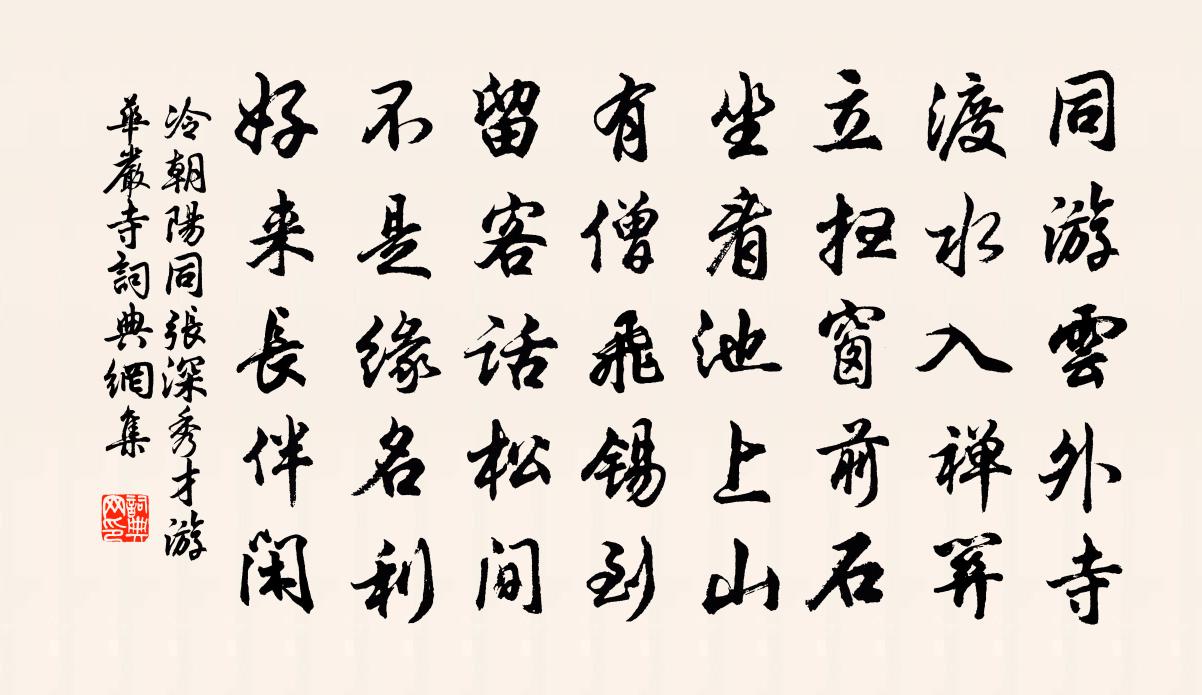 同游雲外寺
渡水入禅關
立扫窗前石
坐看池上山
有僧飛锡到
留客话松间
不是缘名利
好来長伴闲
冷朝陽同張深秀才游
華嚴寺詞典網集
詞典網印